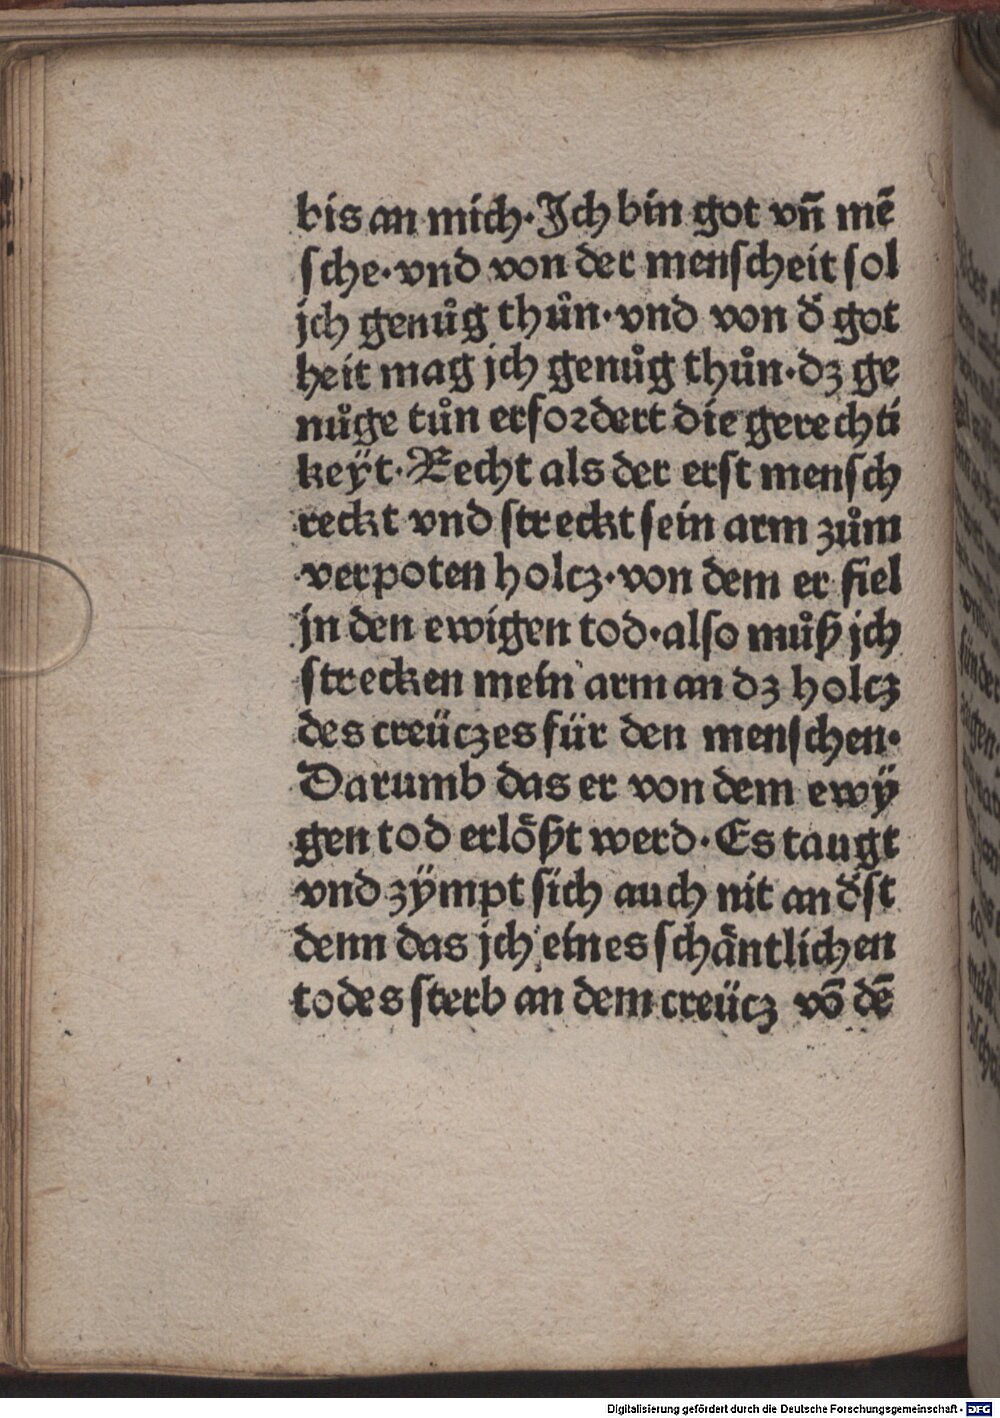 bis an mich·Ich bin got vñ mē
ſche·vnd von der menſcheit ſol
jch genůg thůn·vnd von d̄ got
heit mag jch genůg thůn·dʒ ge
nůge tůn erfoꝛdert die gerechti
keÿt·Recht als der erſt menſch
reckt vnd ſtreckt ſein arm zům
verpoten holcz·von dem er fiel
jn den ewigen tod·alſo můß jch
ſtrecken mein arm an dʒ holcz
des creüczes für den menſchen·
Darumb das er von dem ewÿ
gen tod erlößt werd·Es taugt
vnd zÿmpt ſich auch nit and̄ſt
denn das jch eines ſchäntlichen
todes ſterb an dem creücz vō dē
Digitalisierung gefördert durch die Deutsche Forschungsgemeinschaft - DFG